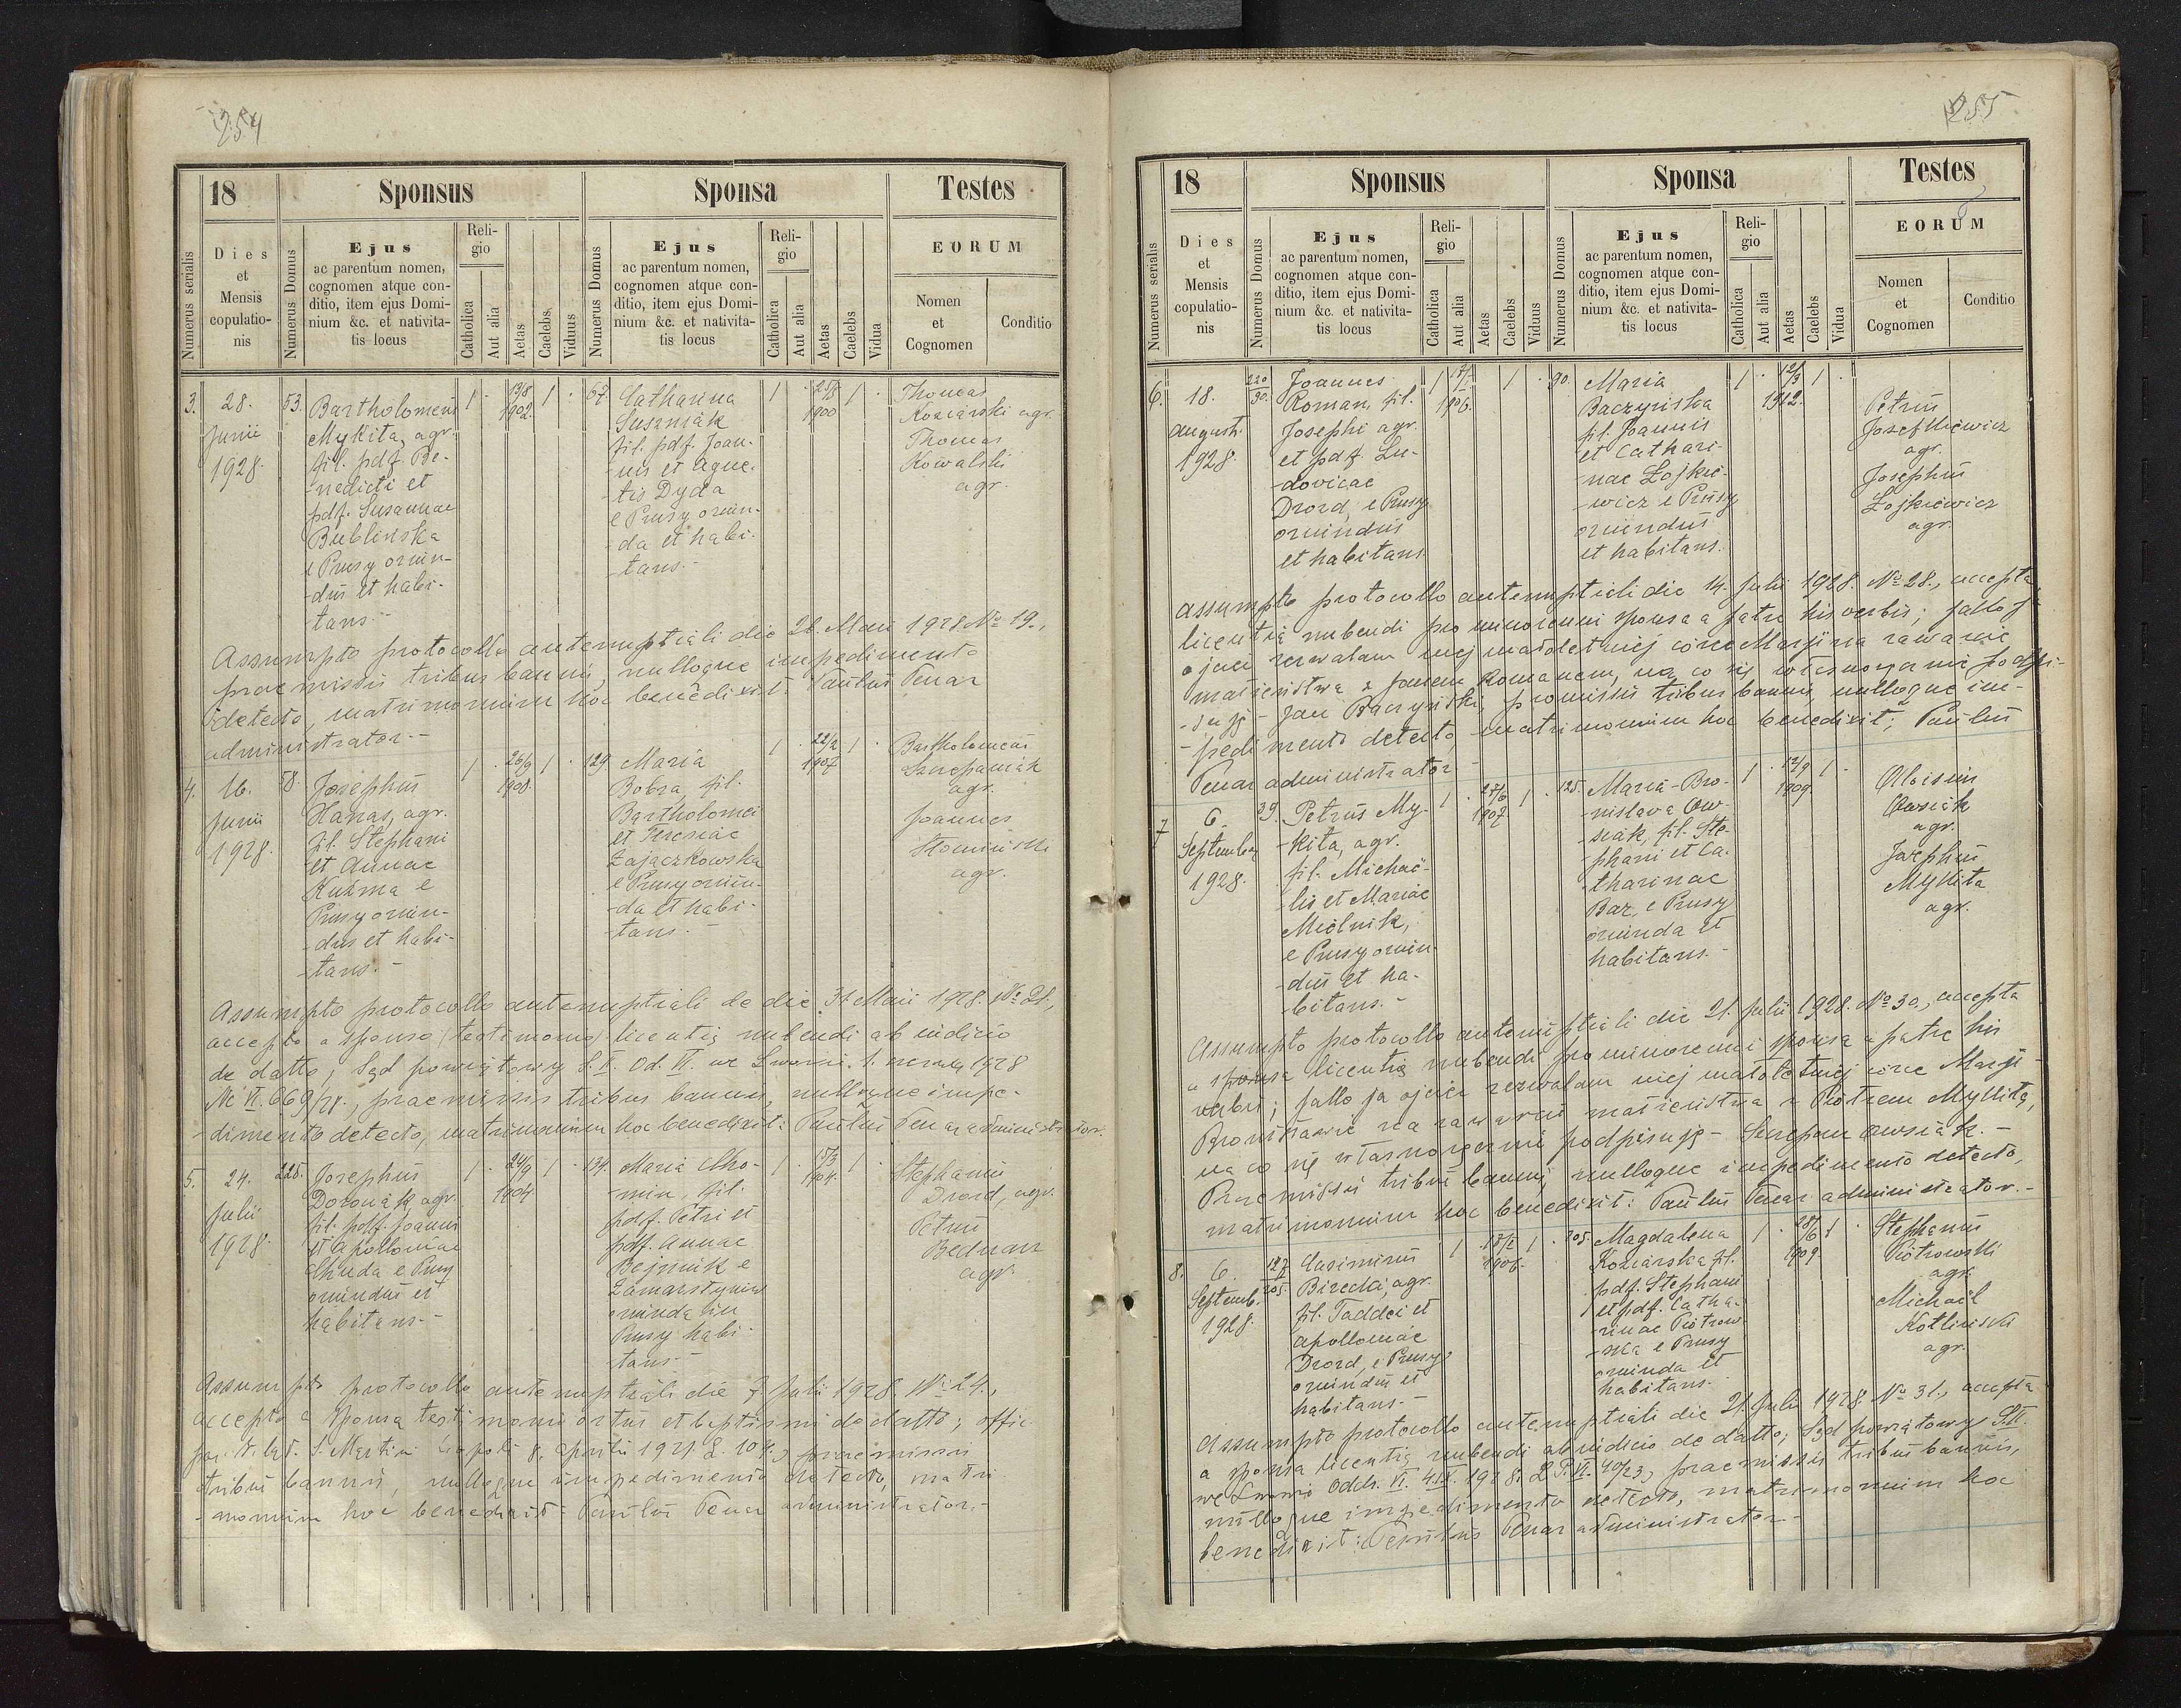 254
18 Sponsus Sponsa Testes
Numerus serialis
Dies et Mensis copulationis
Numerus Domus
Ejus
ac parentum nomen,
cognomen atque con-
ditio, item ejus Domi-
nium &c. et nativita-
tis locus
Religio
Catholica
Aut alia
Aetas
Caelebs
Viduus
Numerus Domus
Ejus
ac parentum nomen,
cognomen atque con-
ditio, item ejus Domi-
nium &c. et nativita-
tis locus
Religio
Catholica
Aut alia
Aetas
Caelebs
Vidua
EORUM
Nomen
et
Cognomen
Conditio
3.
28.
Junii
1928.
53.
Bartholomeus
Mykita, agr.
fil. pdf. Be-
-nedicti et
pdf. Susannae
Bublinska
e Prusy oriun-
-dus et habi-
-tans.-
1 . 13/8 1902. 1 .
67.
Catharina
Suszniak
fil. pdf. Joan-
-nis et Agne-
-tis Dyda
e Prusy oriun-
-da et habi-
-tans.-
1 . 25/8 1900 1 .
Thomas
Koziarski agr.
Thomas
Kowalski
agr.
Assumpto protocollo antenuptiali die 26. Maii 1928. No 19.,
praemissis tribus bannis, nulloque impedimento
detecto, matrimonium hoc benedixit: Paulus Tenar
administrator.-
4.
16.
Junii
1928.
58.
Josephus
Hanas, agr.
fil. Stephani
et Annae
Kuźma e
Prusy oriun-
-dus et habi-
-tans.-
1 . 26/9 1908. 1 .
129.
Maria
Bobra, fil.
Bartholomei
et Teresiae
Zajączkowska
e Prusy oriun-
-da et habi-
-tans.-
1 . 22/2 1907 1 .
Bartholomeus
Szczepaniak
agr.
Joannes
Słomiński
agr.
Assumpto protocollo antenuptiali de die 31. Maii 1928. No 21.,
accepto a sponso testimonio licentię nubendi ab iudicio
de datto; Sąd powiątowy S. II. Od. VI. we Lwowie. 1. czerwca 1928
Nc VI. 669/28., praemissis tribus bannis, nulloque impe-
-dimento detecto, matrimonium hoc benedixit: Paulus Tenar administrator.
5.
24.
Julii
1928.
225.
Josephus
Doroniak, agr.
fil. pdf. Joannis
et Apolloniae
Chuda e Prusy
oriundus et
habitans.-
1 . 24/9 1904 1 .
134.
Maria Cho-
-min, fil.
pdf. Petri et
pdf. Annae
Bejznik e
Zamarstynów
oriunda in
Prusy habi-
-tans.-
1 . 15/3 1904. 1 .
Stephanus
Drozd, agr.
Petrus
Bednarz
agr.
Assumpto protocollo antenuptiali die 7 Julii 1928. No 24.,
accepto a sponsa testimonio ortus et baptismi de datto; offic.
par. r. lat. S. Martini Leopoli 8. Aprilis 1921 L. 104., praemissis
tribus bannis, nulloque impedimento detecto, matri-
-monium hoc benedixit: Paulus Tenar administrator.-
255
18 Sponsus Sponsa Testes
Numerus serialis
Dies et Mensis copulationis
Numerus Domus
Ejus
ac parentum nomen,
cognomen atque con-
ditio, item ejus Domi-
nium &c. et nativita-
tis locus
Religio
Catholica
Aut alia
Aetas
Caelebs
Viduus
Numerus Domus
Ejus
ac parentum nomen,
cognomen atque con-
ditio, item ejus Domi-
nium &c. et nativita-
tis locus
Religio
Catholica
Aut alia
Aetas
Caelebs
Vidua
EORUM
Nomen
et
Cognomen
Conditio
6.
18.
Augusti.
1928.
220/90.
Joannes
Roman, fil.
Josephi agr.
et pdf. Lu-
-dovicae
Drozd, e Prusy
oriundus
et habitans.
1 1906. 1 .
90.
Maria
Baczyńska
fil. Joannis
et Cathari-
-nae Łojkie-
-wicz e Prusy
oriundus
et habitans.
1 . 12/3 1912. 1 .
Petrus
Josefkiewicz
agr.
Josephus
Łojkiewicz
agr.
Assumpto protocollo antenuptiali die 14. Julii 1928. No 28., accepta
licentia nubendi pro minorenni sponsa a patre his verbis; Jako
ojciec zezwalam mej małoletniej córce Marji na zawarcie
małżeństwa z Janem Romanem, na co się własnoręcznie podpi-
-suję - Jan Baczyński, promissis tribus bannis, nulloque im-
-pedimento detecto, matrimonium hoc benedixit; Paulus
Tenar administrator.-
7
6.
Septembra
1928.
39.
Petrus My-
-kita, agr.
fil. Michaë-
-lis et Mariae
Mielnik,
e Prusy oriun-
-dus et ha-
-bitans.-
1 . 27/6 1907. 1 .
125.
Maria-Bro-
-nislava Ow-
-siak, fil. Ste-
-phani et Ca-
-tharinae
Baz, e Prusy
oriunda et
habitans.-
1 . 12/9 1909. 1 .
Aloisius
Owsiak
agr.
Josephus
Mykita
agr.
Assumpto protocollo antenuptiali die 21. Julii 1928. No 30., accepta
a sponsa licentię nubendi pro minorenni sponsa a patre his
verbis; Jako ja ojciec zezwalam mej małoletniej córce Marji
Bronisławie na zawarcie małżeństwa z Piotrem Mykitą,
na co się własnoręcznie podpisuję - Szczepan Owsiak.-
Praemissis tribus bannis, nulloque impedimento detecto,
matrimonium hoc benedixit: Paulus Tenar administrator.-
8.
6.
Septemb.
1928.
127/205.
Casimirus
Birecki, agr.
fil. Taddei et
Apolloniae
Drozd, e Prusy
oriundus et
habitans.-
1 . 1906. 1 .
205.
Magdalena
Koziarska fil.
pdf. Stephani
et pdf. Catha-
-rinae Piotrow-
-ska e Prusy
oriunda et
habitans.-
1 . 28/6 1909 1 .
Stephanus
Piotrowski
agr.
Michaël
Kotliński
agr.
Assumpto protocollo antenuptiali die 21. Julii 1928. No 31., accepta
a sponsa licentię nubendi ab iudicio de datto; Sąd powiątowy S.II.
we Lwowie Oddz. VI. 4.IX. 1928. L.P. VI. 40/23, praemissis tribus bannis,
nulloque impedimento detecto, matrimonium hoc
benedixit: Paulus Tenar administrator.-